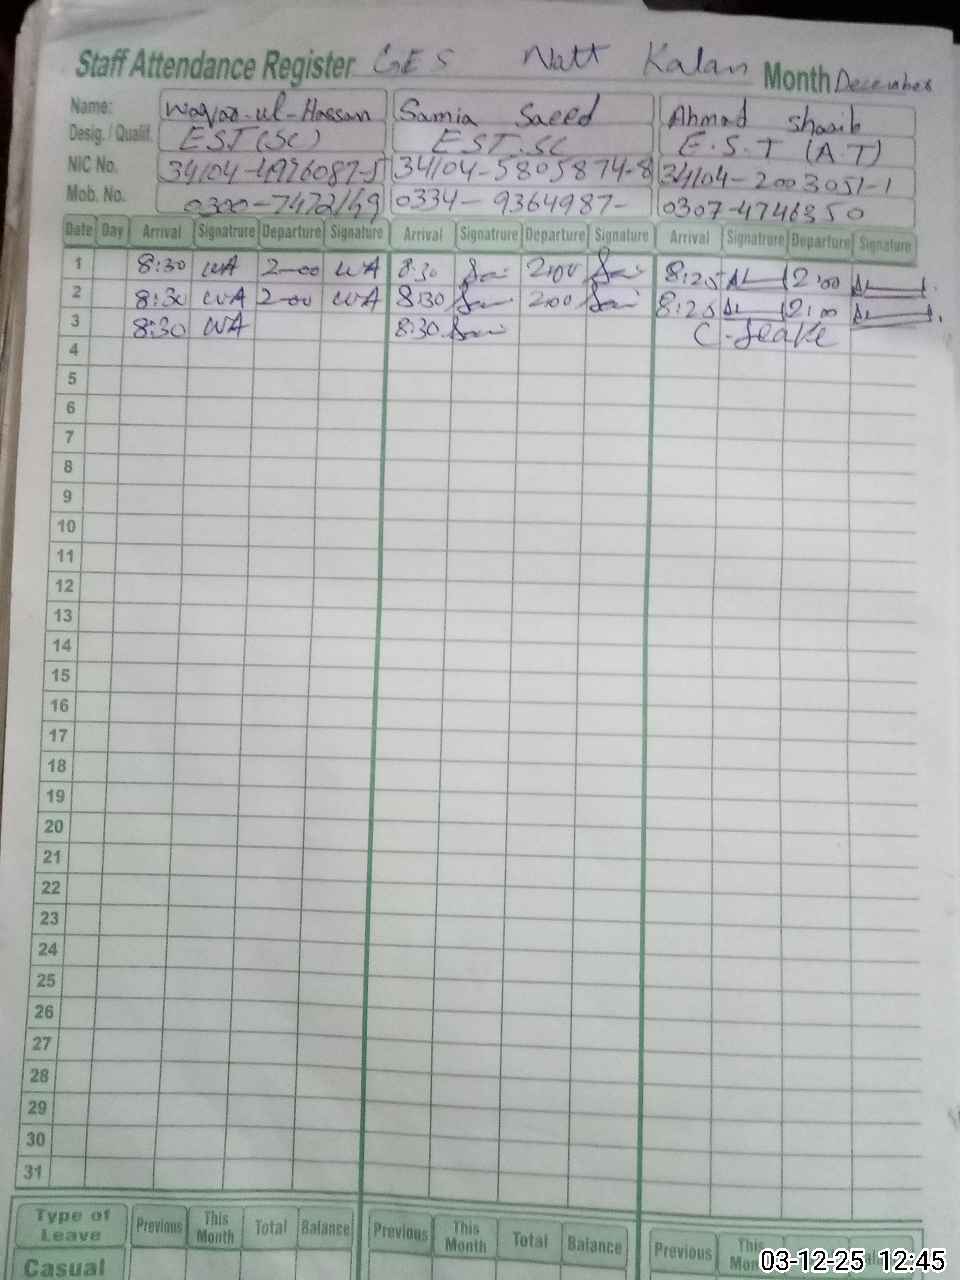 Staff Attendance Register GES Natt Kalan Month December
Name: Waqar-ul-Hassan Samia Saeed Ahmad Shoaib
Desig. / Qualif. EST(SC) EST.SC E.S.T (A.T)
NIC No. 34104-5805874-8 34104-2003051-1
Mob. No. 0300-7472149 0334-9364987- 0307-4746350
Date Day Arrival Signatrure Departure Signature Arrival Signatrure Departure Signature Arrival Signatrure Departure Signature
1 8:30 WA 2-00 WA 8:30 2:00 8:25 2:00
2 8:30 WA 2-00 WA 8:30 2:00 8:25 2:00
3 8:30 WA 8:30 C-leave
4
5
6
7
8
9
10
11
12
13
14
15
16
17
18
19
20
21
22
23
24
25
26
27
28
29
30
31
Type of Leave Previous This Month Total Balance Previous This Month Total Balance Previous This
Casual
03-12-25 12:45